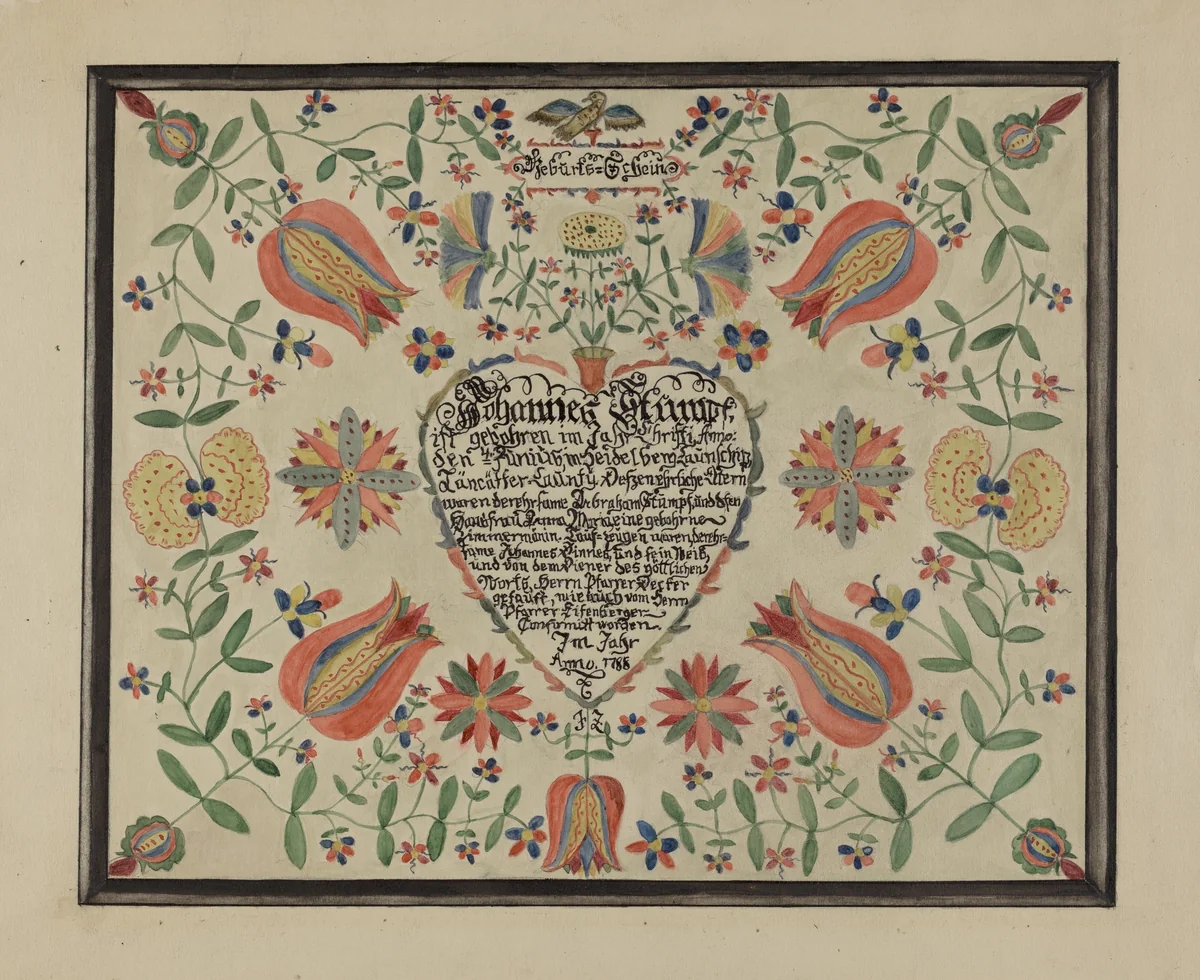 Geburts=Schein
Johannes Stumpf,
ist gebohren im Jahr Christi Anno:
den 4 in Heidelberg Taunschip,
Läncäster=Caunty. Deßen ehrliche Eltern
waren der ehrsame Abraham Stumpf, und deßen
Hausfrau Anna Maria, eine gebohrne
Zimmermänin. Tauf=zeugen waren der ehr=
same Johannes und sein Weib,
und von dem Diener des göttlichen
Worts, Herrn Pfarrer Decker
getauft, wie auch vom Herrn
Pfarrer
Confirmirt worden.
Im Jahr
Anno. 1788